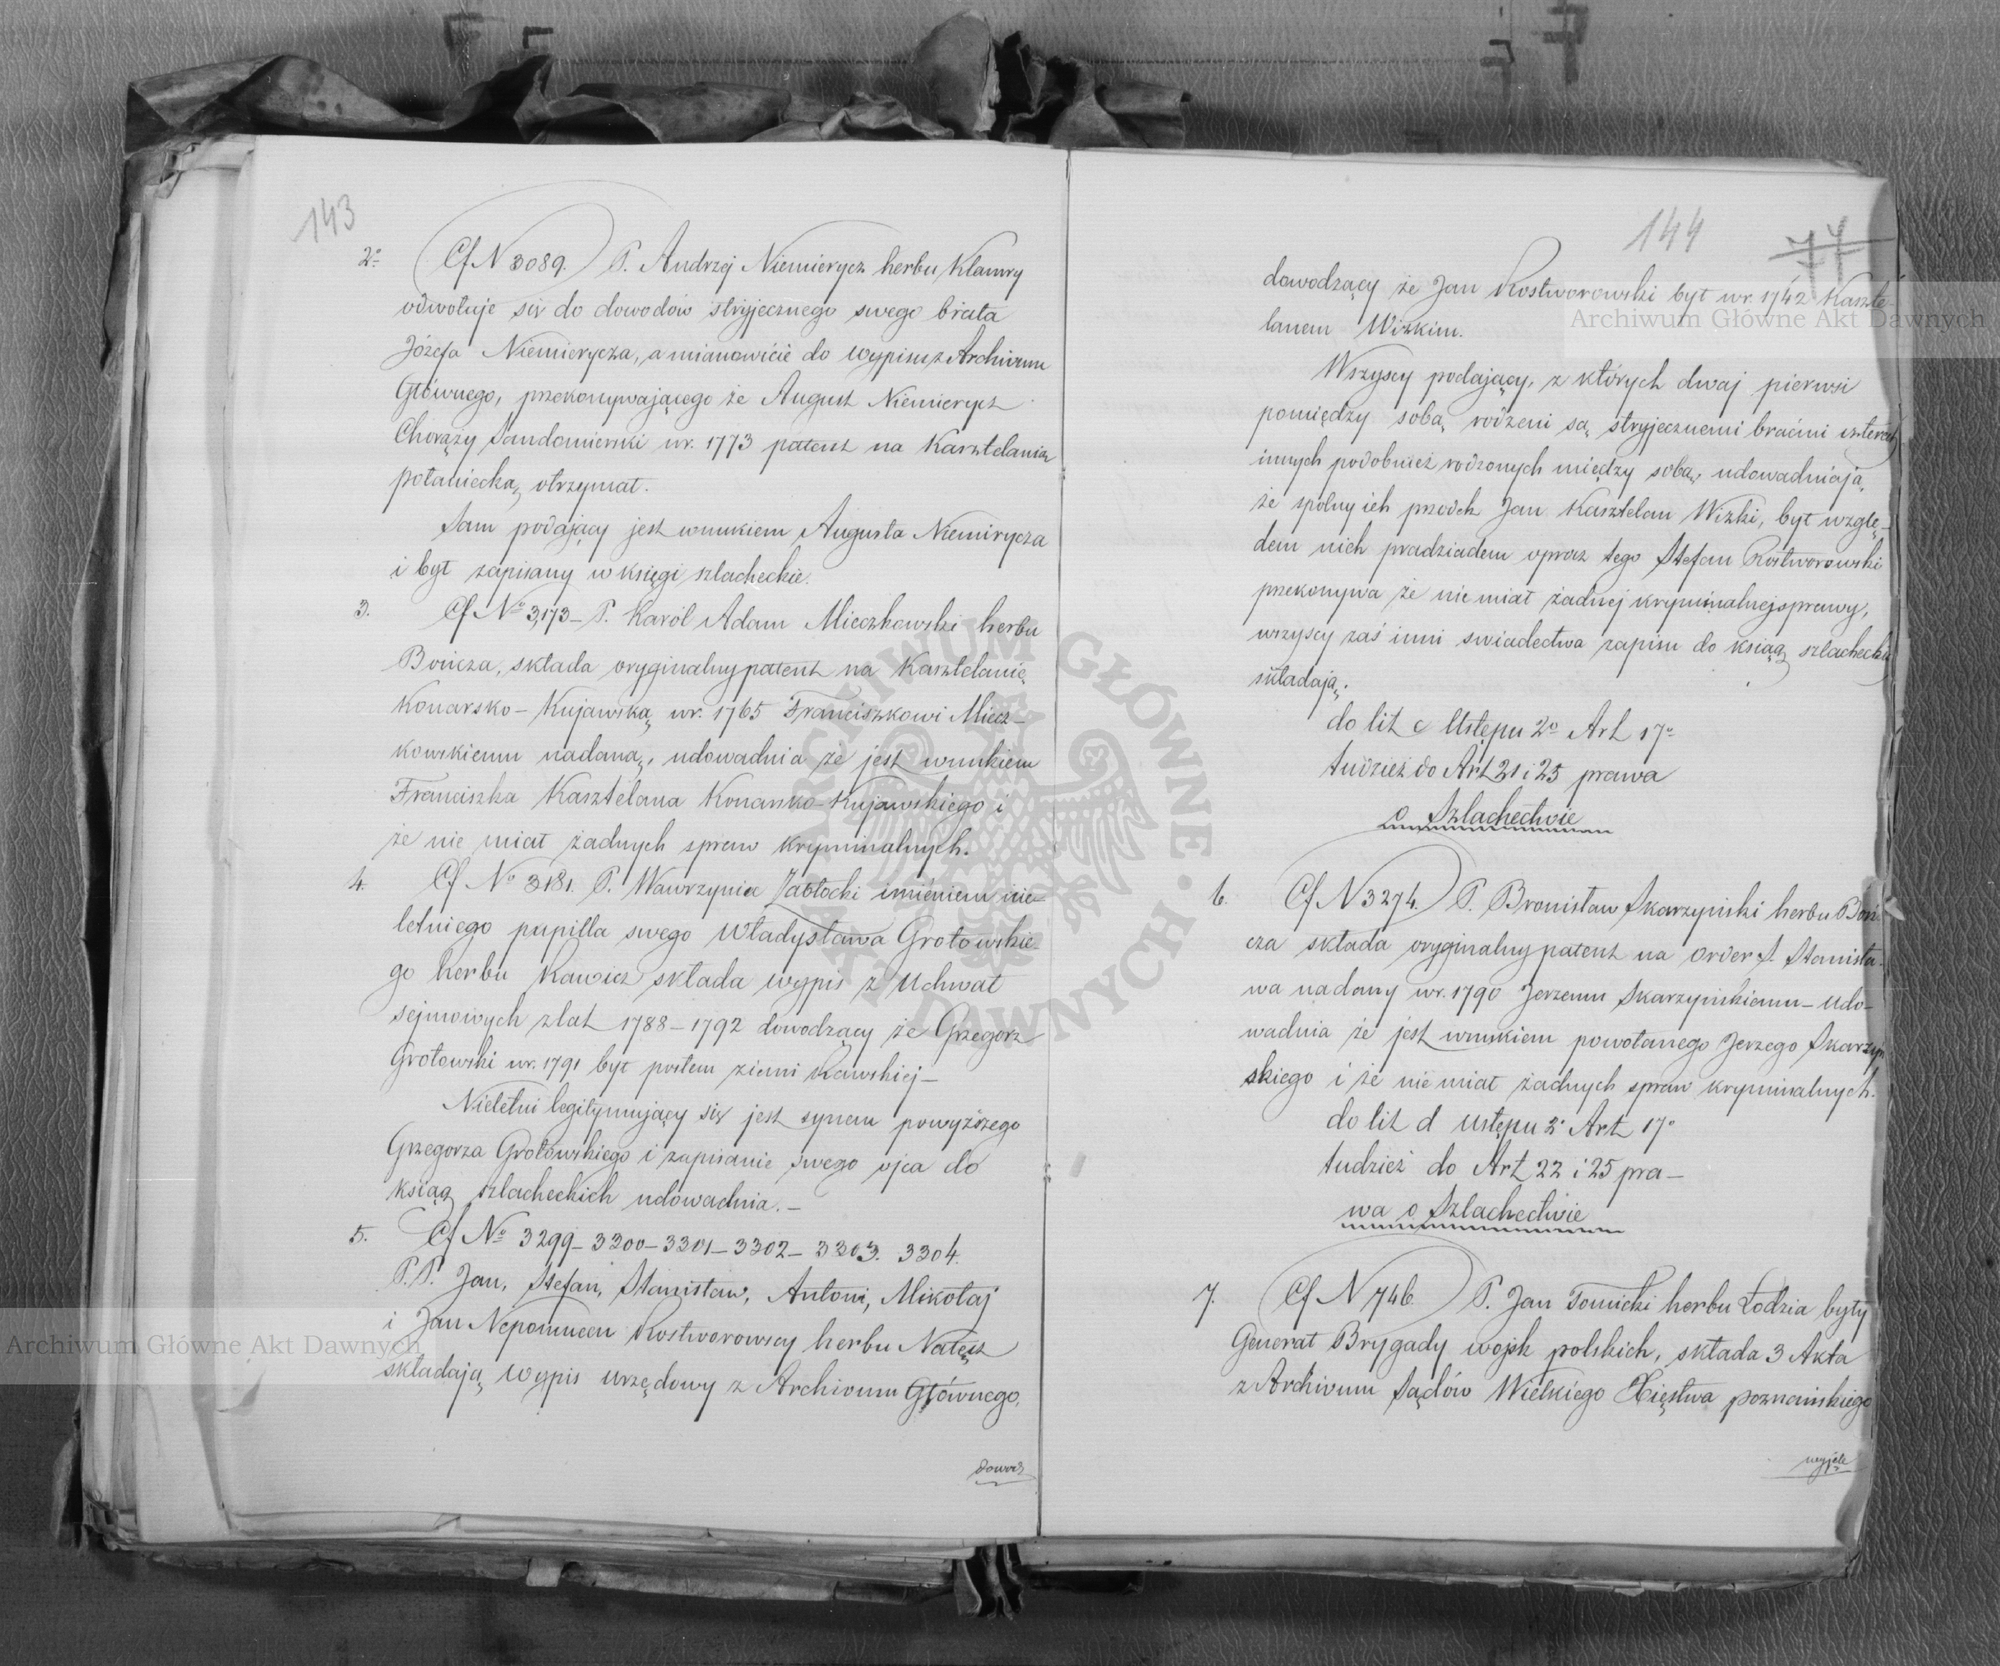 143
2º Cf N 3089. P. Andrzej Niemierycz herbu Klamry
odwołuje się do dowodów stryjecznego swego brata
Józefa Niemierycza, a mianowicie do wypisu z Archivum
Głównego, przekonywającego że August Niemierycz
Chorąży Sandomierski w r. 1773 patent na Kasztelanią
połaniecką otrzymał.
Sam podający jest wnukiem Augusta Niemirycza
i był zapisany w księgi szlacheckie.
3. Cf Nº 3,173 – P. Karól Adam Mieczkowski herbu
Bończa, składa oryginalny patent na Kasztelanię
Konarsko – Kujawską w r. 1765 Franciszkowi Miecz–
kowskiemu nadaną, udowadnia że jest wnukiem
Franciszka Kasztelana Konarsko – Kujawskiego i
że nie miał żadnych spraw kryminalnych.
4. Cf Nº 3181. P. Wawrzyniec Zabłocki imieniem nie–
letniego pupilla swego Władysława Grotowskie–
go herbu Rawicz składa wypis z Uchwał
sejmowych z lat 1788 – 1792 dowodzący że Grzegorz
Grotowski w r. 1791 był posłem ziemi Rawskiej –
Nieletni legitymujący się jest synem powyższego
Grzegorza Grotowskiego i zapisanie swego ojca do
ksiąg szlacheckich udowadnia. –
5. Cf Nº 3299 – 3300 – 3301 – 3302 – 3303. 3304.
P.P. Jan, Stefan, Stanisław, Antoni, Mikołaj
i Jan Nepomucen Rostworowscy herbu Nałęcz
składają wypis urzędowy z Archivum Głównego,
dowod
144
77
dowodzący że Jan Rostworowski był w r. 1742 Kaszte–
lanem Wizkim.
Wszyscy podający, z których dwaj pierwsi
pomiędzy sobą rodzeni są stryjecznemi braćmi czterech
innych podobnież rodzonych między sobą, udowadniają,
że spólny ich przodek Jan Kasztelan Wizki, był wzglę–
dem nich pradziadem oprócz tego Stefan Rostworowski
przekonywa że nie miał żadnej kryminalnej sprawy,
wszyscy zaś inni swiadectwa zapisu do ksiąg szlacheckich
składają.
do lit c Ustępu 2º Art 17º
tudzież do Art 21 i 25 prawa
o Szlachectwie
6. Cf N 3274. P. Bronisław Skarzyński herbu Boń–
cza składa oryginalny patent na order S. Stanisła–
wa nadany w r. 1790 Jerzemu Skarzyńskiemu – udo–
wadnia że jest wnukiem powołanego Jerzego Skarzyń–
skiego i że nie miał żadnych spraw kryminalnych.
do lit d Ustępu 2º Art 17º
tudzież do Art 22 i 25 pra–
wa o Szlachectwie
7. Cf N 746. P. Jan Tomicki herbu Łodzia były
Generał Brygady wojsk polskich, składa 3 Akta
z Archivum Sądów Wielkiego Xięstwa poznańskiego
wyjęte
Archiwum Główne Akt Dawnych
Archiwum Główne Akt Dawnych
ARCHIWUM GŁÓWNE • AKT DAWNYCH •